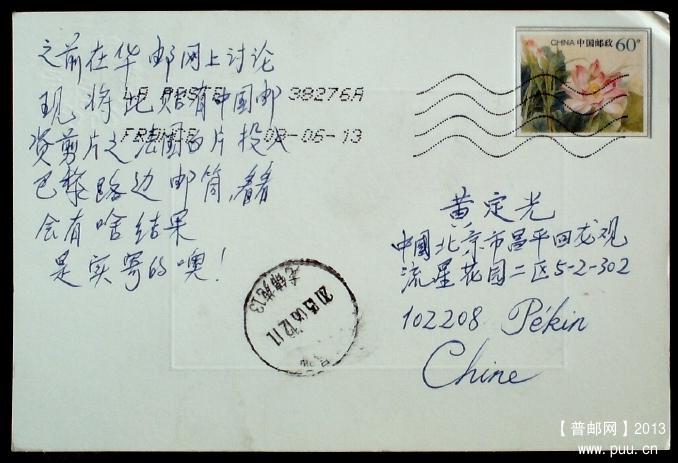 之前在华邮网上讨论
现将此贴有中国邮
资剪片之法国白片投入
巴黎路边邮筒,看看
会有啥结果
是实寄的噢!
CHINA 中国邮政 60分
LA POSTE 38276A
FRANCE 08-06-13
黄定光
中國北京市昌平回龙观
流星花园二区5-2-302
102208 Pékin
Chine
2013.06.12.11
【普邮网】2013
www.puu.cn